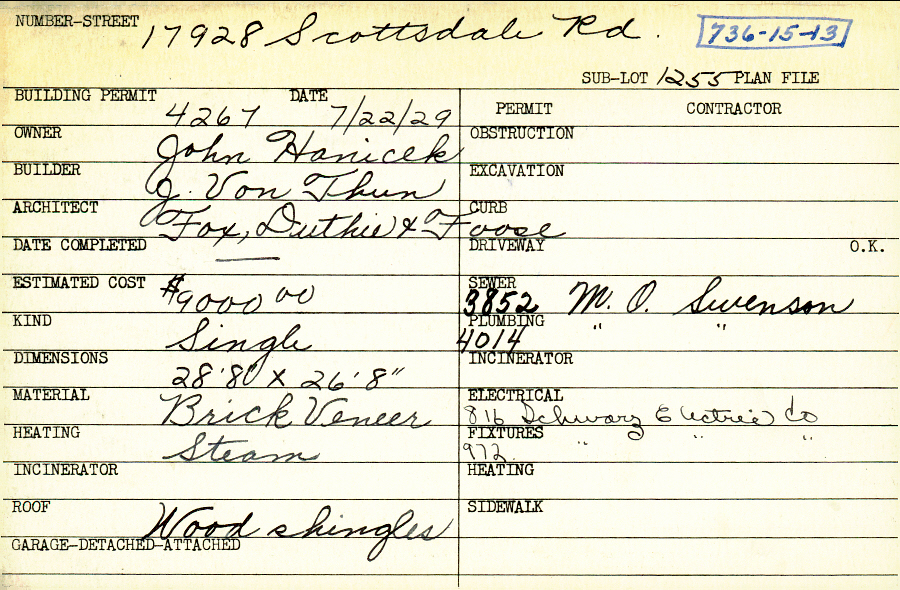 NUMBER-STREET 17928 Scottsdale Rd. 736-15-13
SUB-LOT 1255 PLAN FILE
BUILDING PERMIT 4267 DATE 7/22/29 PERMIT CONTRACTOR
OWNER John Hanicek OBSTRUCTION
BUILDER J. Von Thun EXCAVATION
ARCHITECT Fox, Duthie & Foose CURB
DATE COMPLETED — DRIVEWAY O.K.
ESTIMATED COST $9000 00 SEWER 3852 M. O. Swenson
KIND Single PLUMBING 4014 " "
DIMENSIONS 28'8" X 26'8" INCINERATOR
MATERIAL Brick Veneer ELECTRICAL 816 Schwarz Electric Co
HEATING Steam FIXTURES 972 " " "
INCINERATOR HEATING
ROOF Wood shingles SIDEWALK
GARAGE-DETACHED-ATTACHED